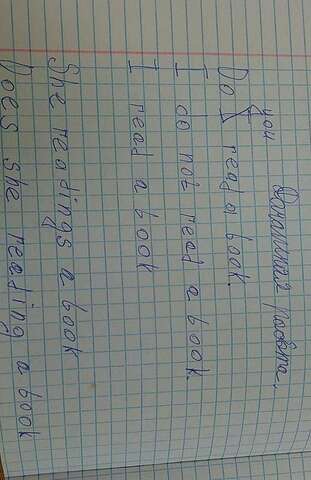 Домашняя работа.
you
Do I read a book.
I do not read a book.
I read a book
She readings a book
Does she reading a book